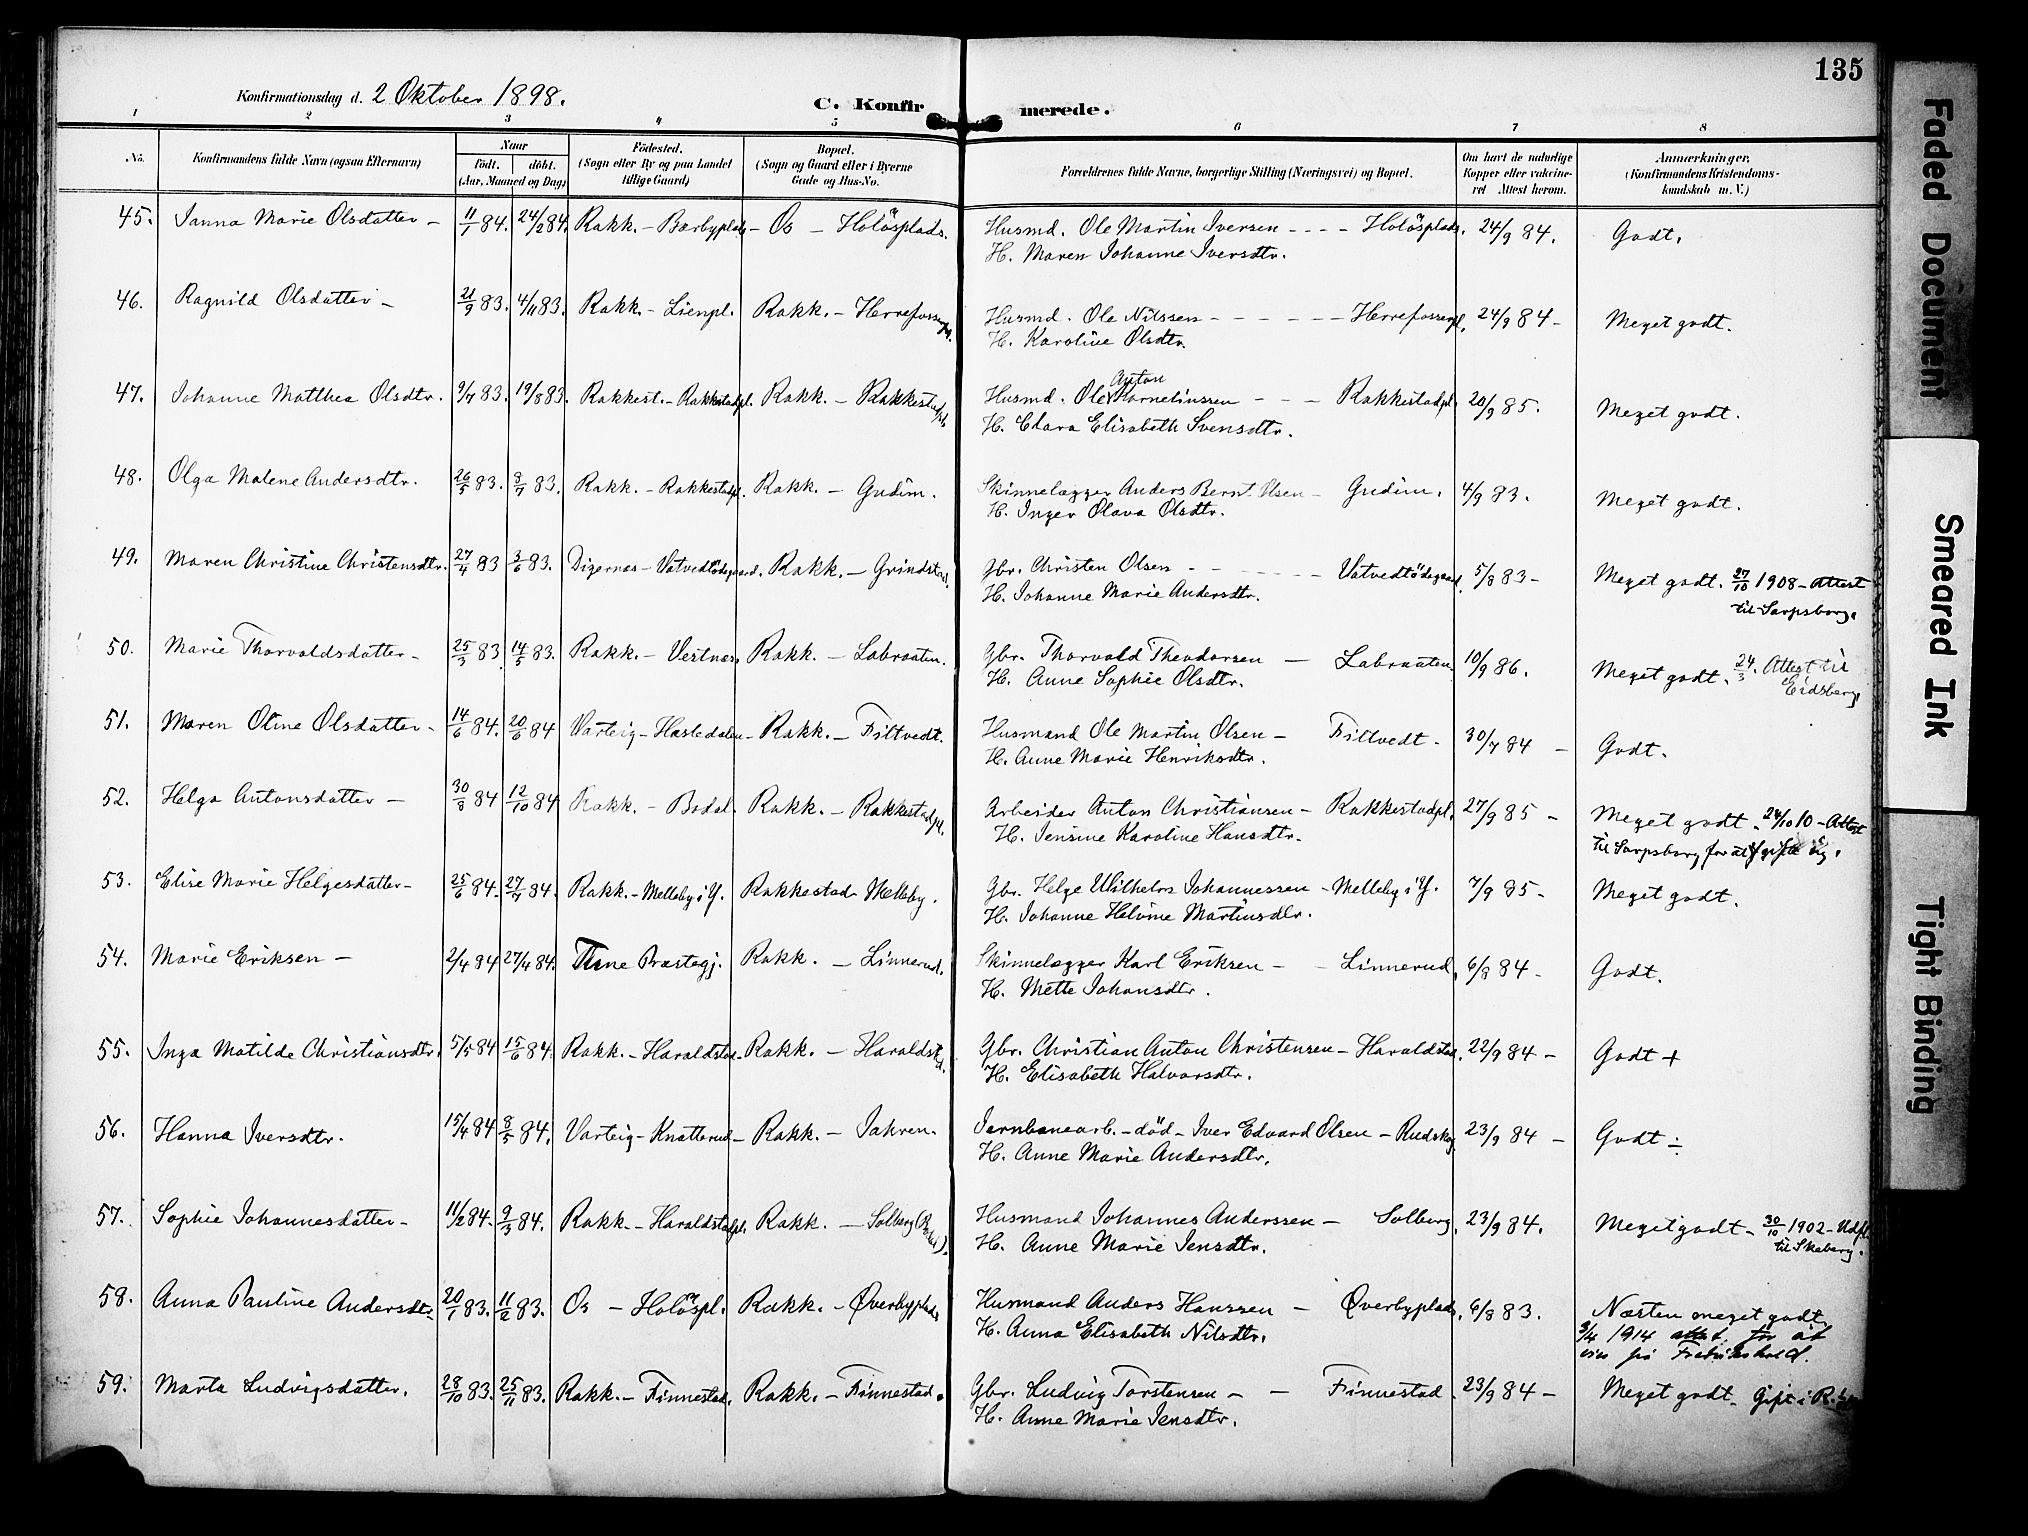 135
Konfirmationsdag d. 2 Oktober 1898.
C. Konfirmerede.
1 2 3 4 5 6 7 8
No. Konfirmandens fulde Navn (ogsaa Efternavn) Naar födt. döbt. (Aar, Maaned og Dag) Födested. (Sogn eller By og paa Landet tillige Gaard) Bopæl. (Sogn og Gaard eller i Byerne Gade og Hus-No. Forældrenes fulde Navne, borgerlige Stilling (Næringsvei) og Bopæl. Om havt de naturlige Kopper eller vakcineret Attest herom. Anmærkninger. (Konfirmandens Kristendomskundskab m.V.)
45. Janna Marie Olsdatter – 11/1 84. 24/2 84. Rakk. – Bærbyplads – Os – Holøsplads. Husmd. Ole Martin Iversen – – – – Holøsplads. 24/9 84. Godt.
H. Maren Johanne Iversdtr.
46. Ragnild Olsdatter – 21/9 83. 4/11 83. Rakk. – Lienpl. Rakk. – Herrefossenpl. Husmd. Ole Nilssen – – – – – – Herrefossenpl. 24/9 84 – Meget godt.
H. Karoline Olsdtr.
47. Johanne Matthea Olsdtr. 9/7 83. 19/8 83. Rakkest. – Rakkestadpl. Rakk. – Rakkestadpl. Husmd. Ole Anton Kornelinssen – – – Rakkestadpl. 20/9 85. Meget godt.
H. Clara Elisabeth Svensdtr.
48. Olga Malene Andersdtr. 26/5 83. 8/7 83. Rakk. – Rakkestadpl. Rakk. – Gudim. Skinnelægger Anders Bernt Olsen – Gudim. 4/9 83. Meget godt.
H. Inger Olava Olsdtr.
49. Maren Christine Christensdtr. 27/4 83 3/6 83. Digernæs – Vatvedtödegaard. Rakk. – Grindstad. Gbr. Christen Olsen – – – – – – Vatvedtödegaard. 5/8 83 – Meget godt. 27/10 1908 – Attest til Sarpsborg.
H. Johanne Marie Andersdtr.
50. Marie Thorvaldsdatter – 25/3 83 14/5 83. Rakk. – Vestnæs. Rakk. – Labraaten. Gbr. Thorvald Theodorsen – Labraaten. 10/9 86. Meget godt. 24/3. Attest til Eidsberg
H. Anne Sophie Olsdtr.
51. Maren Oline Olsdatter – 14/6 84. 20/6 84 Varteig – Hasledalen – Rakk. – Filtvedt. Husmand Ole Martin Olsen – Filtvedt – 30/7 84 – Godt.
H. Anne Marie Henriksdtr.
52. Helga Antonsdatter – 30/8 84 12/10 84 Rakk. – Bodal. Rakk. – Rakkestadpl. Arbeider Anton Christiansen – Rakkestadpl. 27/9 85 – Meget godt. 24/10 10 – Attest til Sarpsborg for at gifte sig.
H. Jensine Karoline Hansdtr.
53. Elise Marie Helgesdatter – 25/6 84. 27/7 84. Rakk. – Melleby i Y. Rakkestad Melleby. Gbr. Helge Wilhelm Johannessen – Melleby i Y. 7/9 85 – Meget godt.
H. Johanne Helvine Martinsdtr.
54. Marie Eriksen – 2/4 84 27/4 84. Tune Præstegj. Rakk. – Linnerud. Skinnelægger Karl Eriksen – – Linnerud. 6/8 84 – Godt.
H. Mette Johansdtr.
55. Inga Matilde Christiansdtr. 5/5 84 15/6 84. Rakk. – Haraldstad – Rakk. – Haraldstad. Gbr. Christian Anton Christensen – Haraldstad. 22/9 84 – Godt +
H. Elisabeth Halvorsdtr.
56. Hanna Iversdtr. 15/4 84 8/5 84. Varteig – Knatterud – Rakk. – Jahren. Jernbanearb. – död – Iver Edvard Olsen – Rudskog. 23/9 84 – Godt ÷
H. Anne Marie Andersdtr.
57. Sophie Johannesdatter – 11/2 84. 9/3 84. Rakk. – Haraldstadpl. Rakk. – Solberg Husmand Johannes Anderssen – Solberg. 23/9 84. Meget godt – 30/10 1902 – Udfl. til Skeberg.
H. Anne Marie Jensdtr.
58. Anna Pauline Andersdtr. 20/1 83. 11/2 83. Os – Holøspl. Rakk. – Øverbyplads Husmand Anders Hanssen – Øverbyplads. 6/8 83. Næsten meget godt
H. Anna Elisabeth Nilsdtr. 3/4 1914 attest. for at vies på Fredrikshald.
59. Marta Ludvigsdatter. 28/10 83. 25/11 83. Rakk. – Finnestad. Rakk. – Finnestad. Gbr. Ludvig Torstensen – – Finnestad. 23/9 84 – Meget godt – Gift i R.
H. Anne Marie Jensdtr.
Faded Document
Smeared Ink
Tight Binding